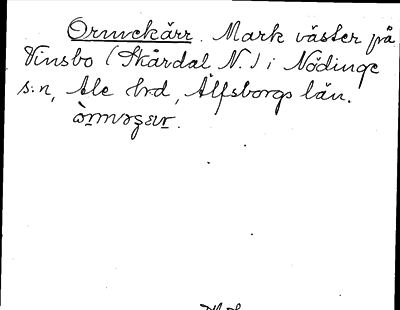 Ormekärr. Mark väster på
Vinsbo (Skårdal N.) i Nödinge
s:n, Ale hrd, Älfsborgs län.